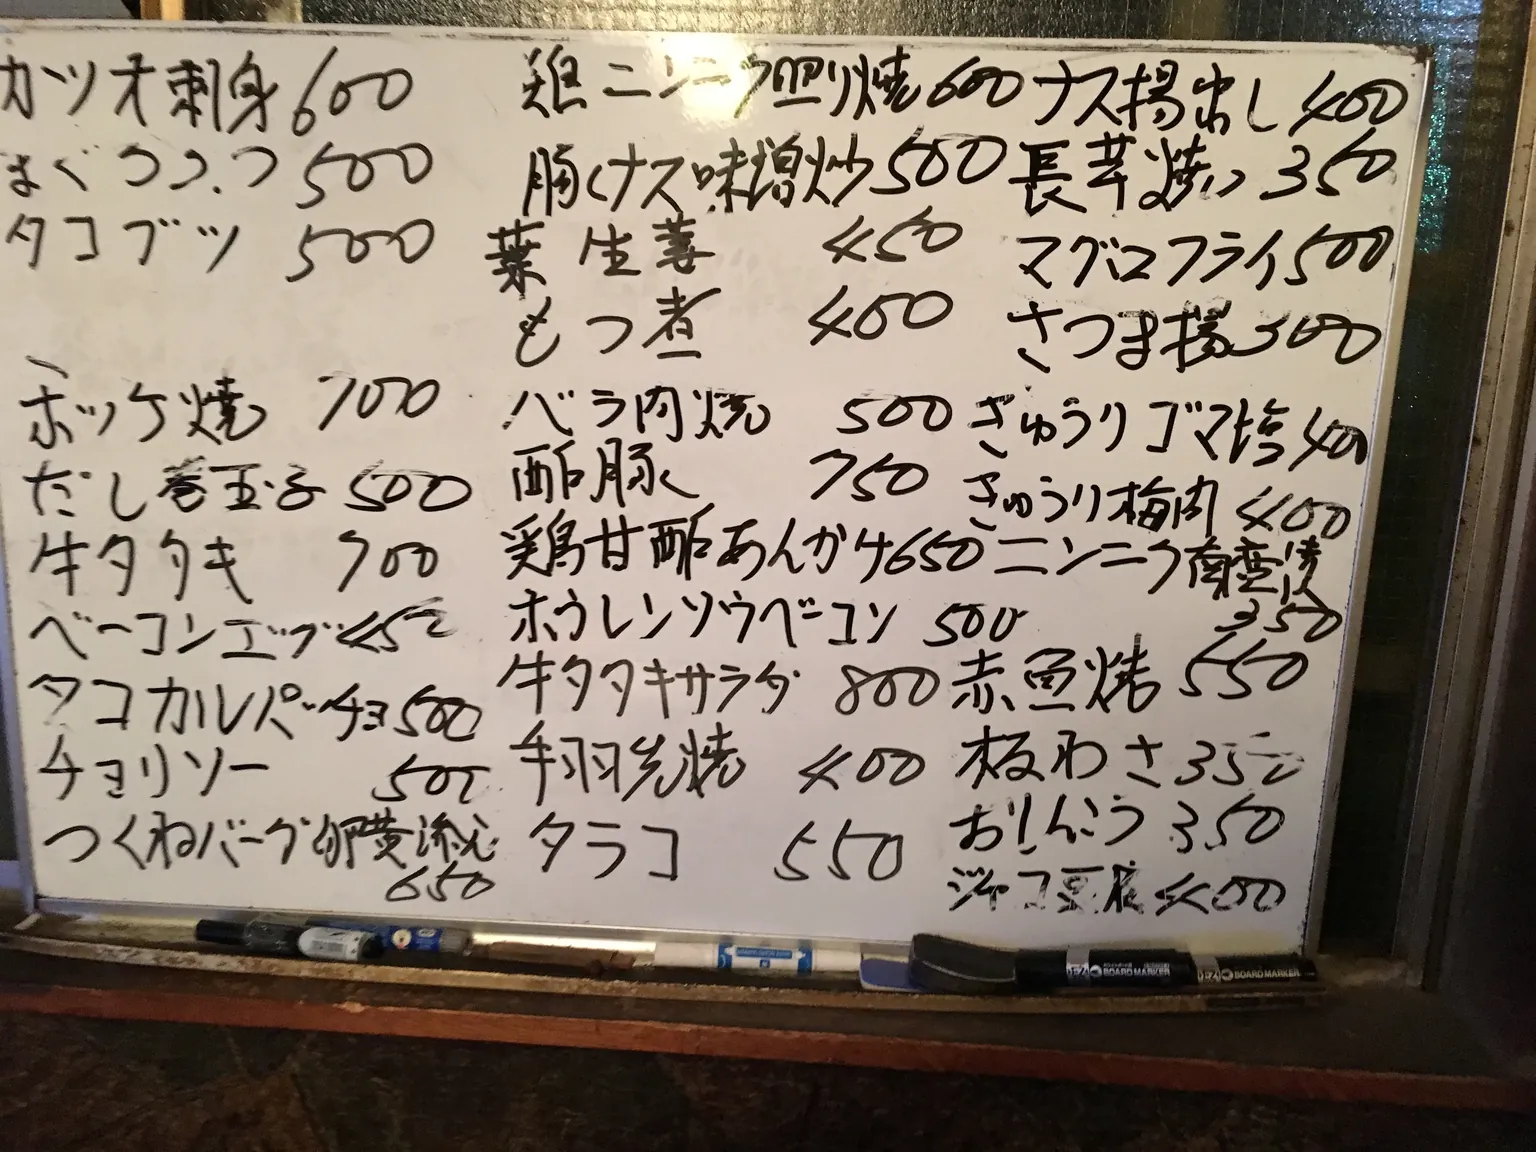 カツオ刺身 600
まぐろぶつ 500
タコブツ 500
ホッケ焼 700
だし巻玉子 500
牛タタキ 700
ベーコンエッグ 450
タコカルパッチョ 500
チョリソー 500
つくねバーグ卵黄添え
650
鶏ニンニク照り焼 600
豚とナス味噌炒 500
葉生姜 450
もつ煮 400
バラ肉焼 500
酢豚 750
鶏甘酢あんかけ 650
ホウレンソウベーコン 500
牛タタキサラダ 800
手羽先焼 400
タラコ 550
ナス揚出し 400
長芋焼 350
マグロフライ 500
さつま揚 300
きゅうりゴマ塩 400
きゅうり梅肉 400
ニンニク南蛮漬
350
赤魚焼 550
板わさ 350
おしんこう 350
ジャコ豆腐 400
BOARD MARKER
BOARD MARKER